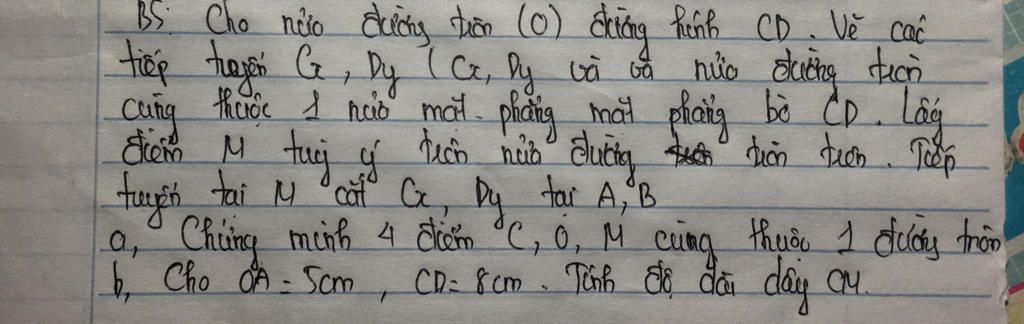 B5: Cho nửa đường tròn (O) đường kính CD. Vẽ các
tiếp tuyến Cx, Dy (Cx, Dy và và nửa đường tròn
cùng thuộc 1 nửa mặt phẳng mặt phẳng bờ CD. Lấy
điểm M tuỳ ý trên nửa đường tròn trên. Tiếp
tuyến tại M cắt Cx, Dy tại A, B
a, Chứng minh 4 điểm C, O, M cùng thuộc 1 đường tròn
b, Cho OA = 5cm, CD = 8cm. Tính độ dài dây CM.